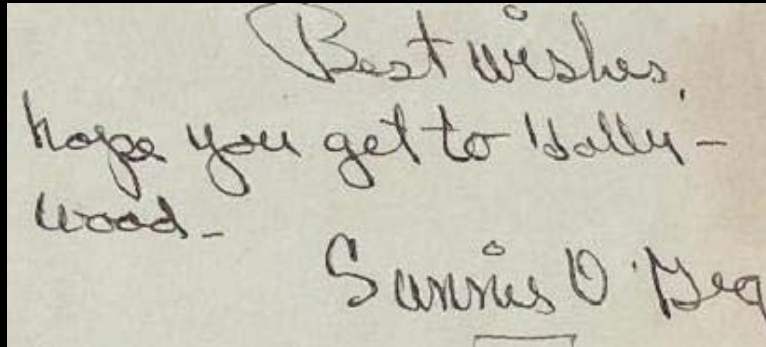 Best wishes,
hope you get to Holly-
wood-
Sunnie O'